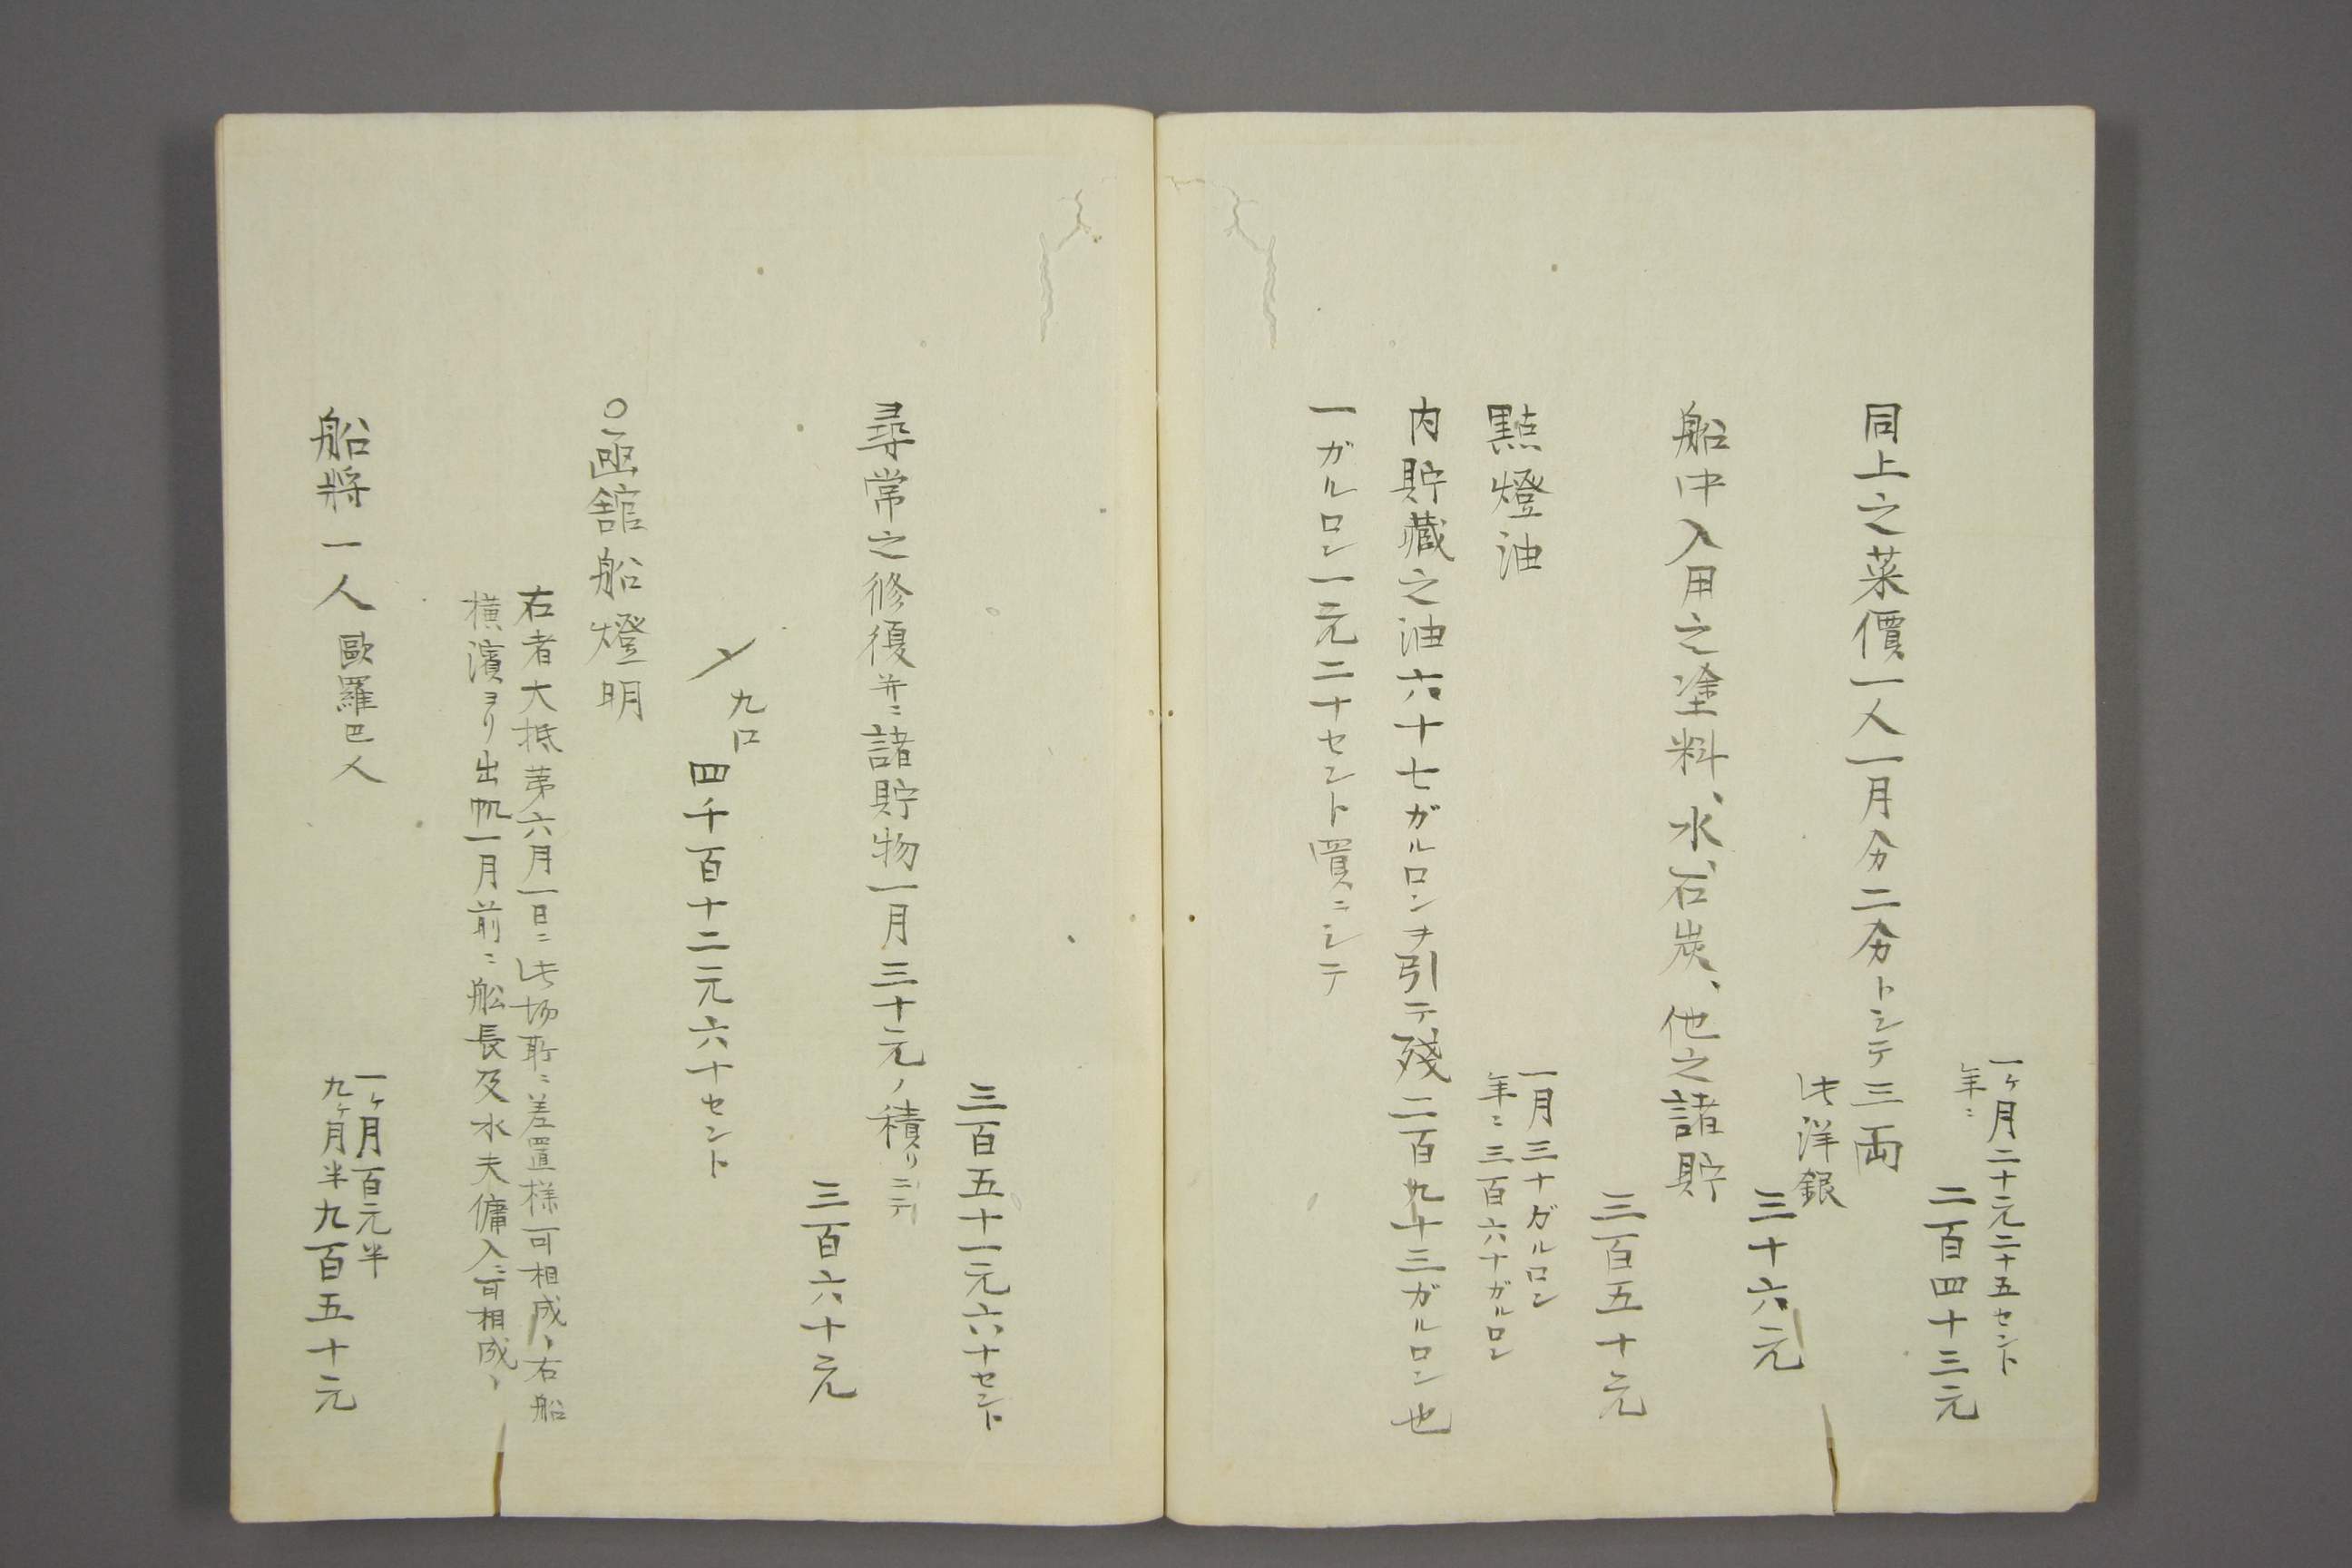 一ヶ月二十元二十五セント
年ニ
二百四十三元
同上之菜價一人一月分二分トシテ三両
此洋銀
三十六元
船中入用之塗料、水、石炭、他之諸貯
三百五十元
一月三十ガルロン
年ニ三百六十ガルロン
點燈油
内貯藏之油六十七ガルロンヲ引テ殘二百九十三ガルロン也
一ガルロン一元二十セント買ニシテ
三百五十一元六十セント
尋常之修復并ニ諸貯物一月三十元ノ積リニテ
三百六十元
〆九口
四千百十二元六十セント
○函舘船燈明
右者大抵第六月一日ニ此場所ニ差置様可相成、右船
横濱ヨリ出帆一月前ニ舩長及水夫傭入ニ可相成、
船將一人 歐羅巴人
一ヶ月百元半
九ヶ月半九百五十元